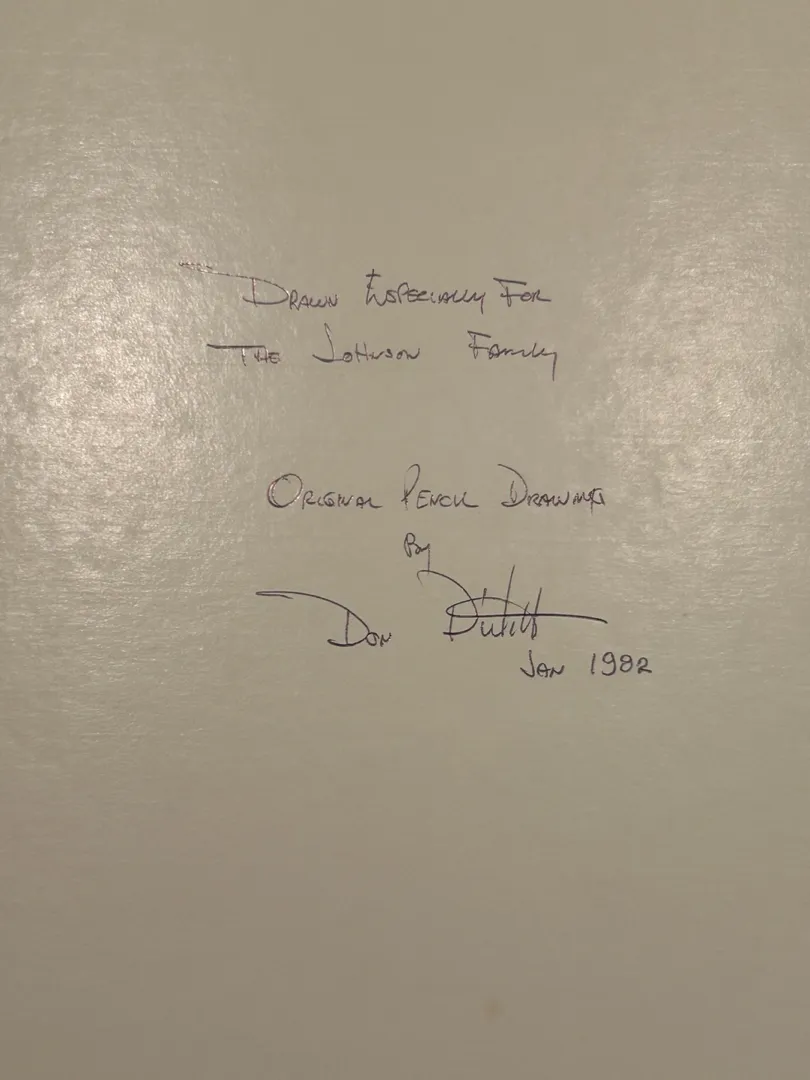 Drawn Especially For
The Johnson Family
Original Pencil Drawings
By
Don
Jan 1982